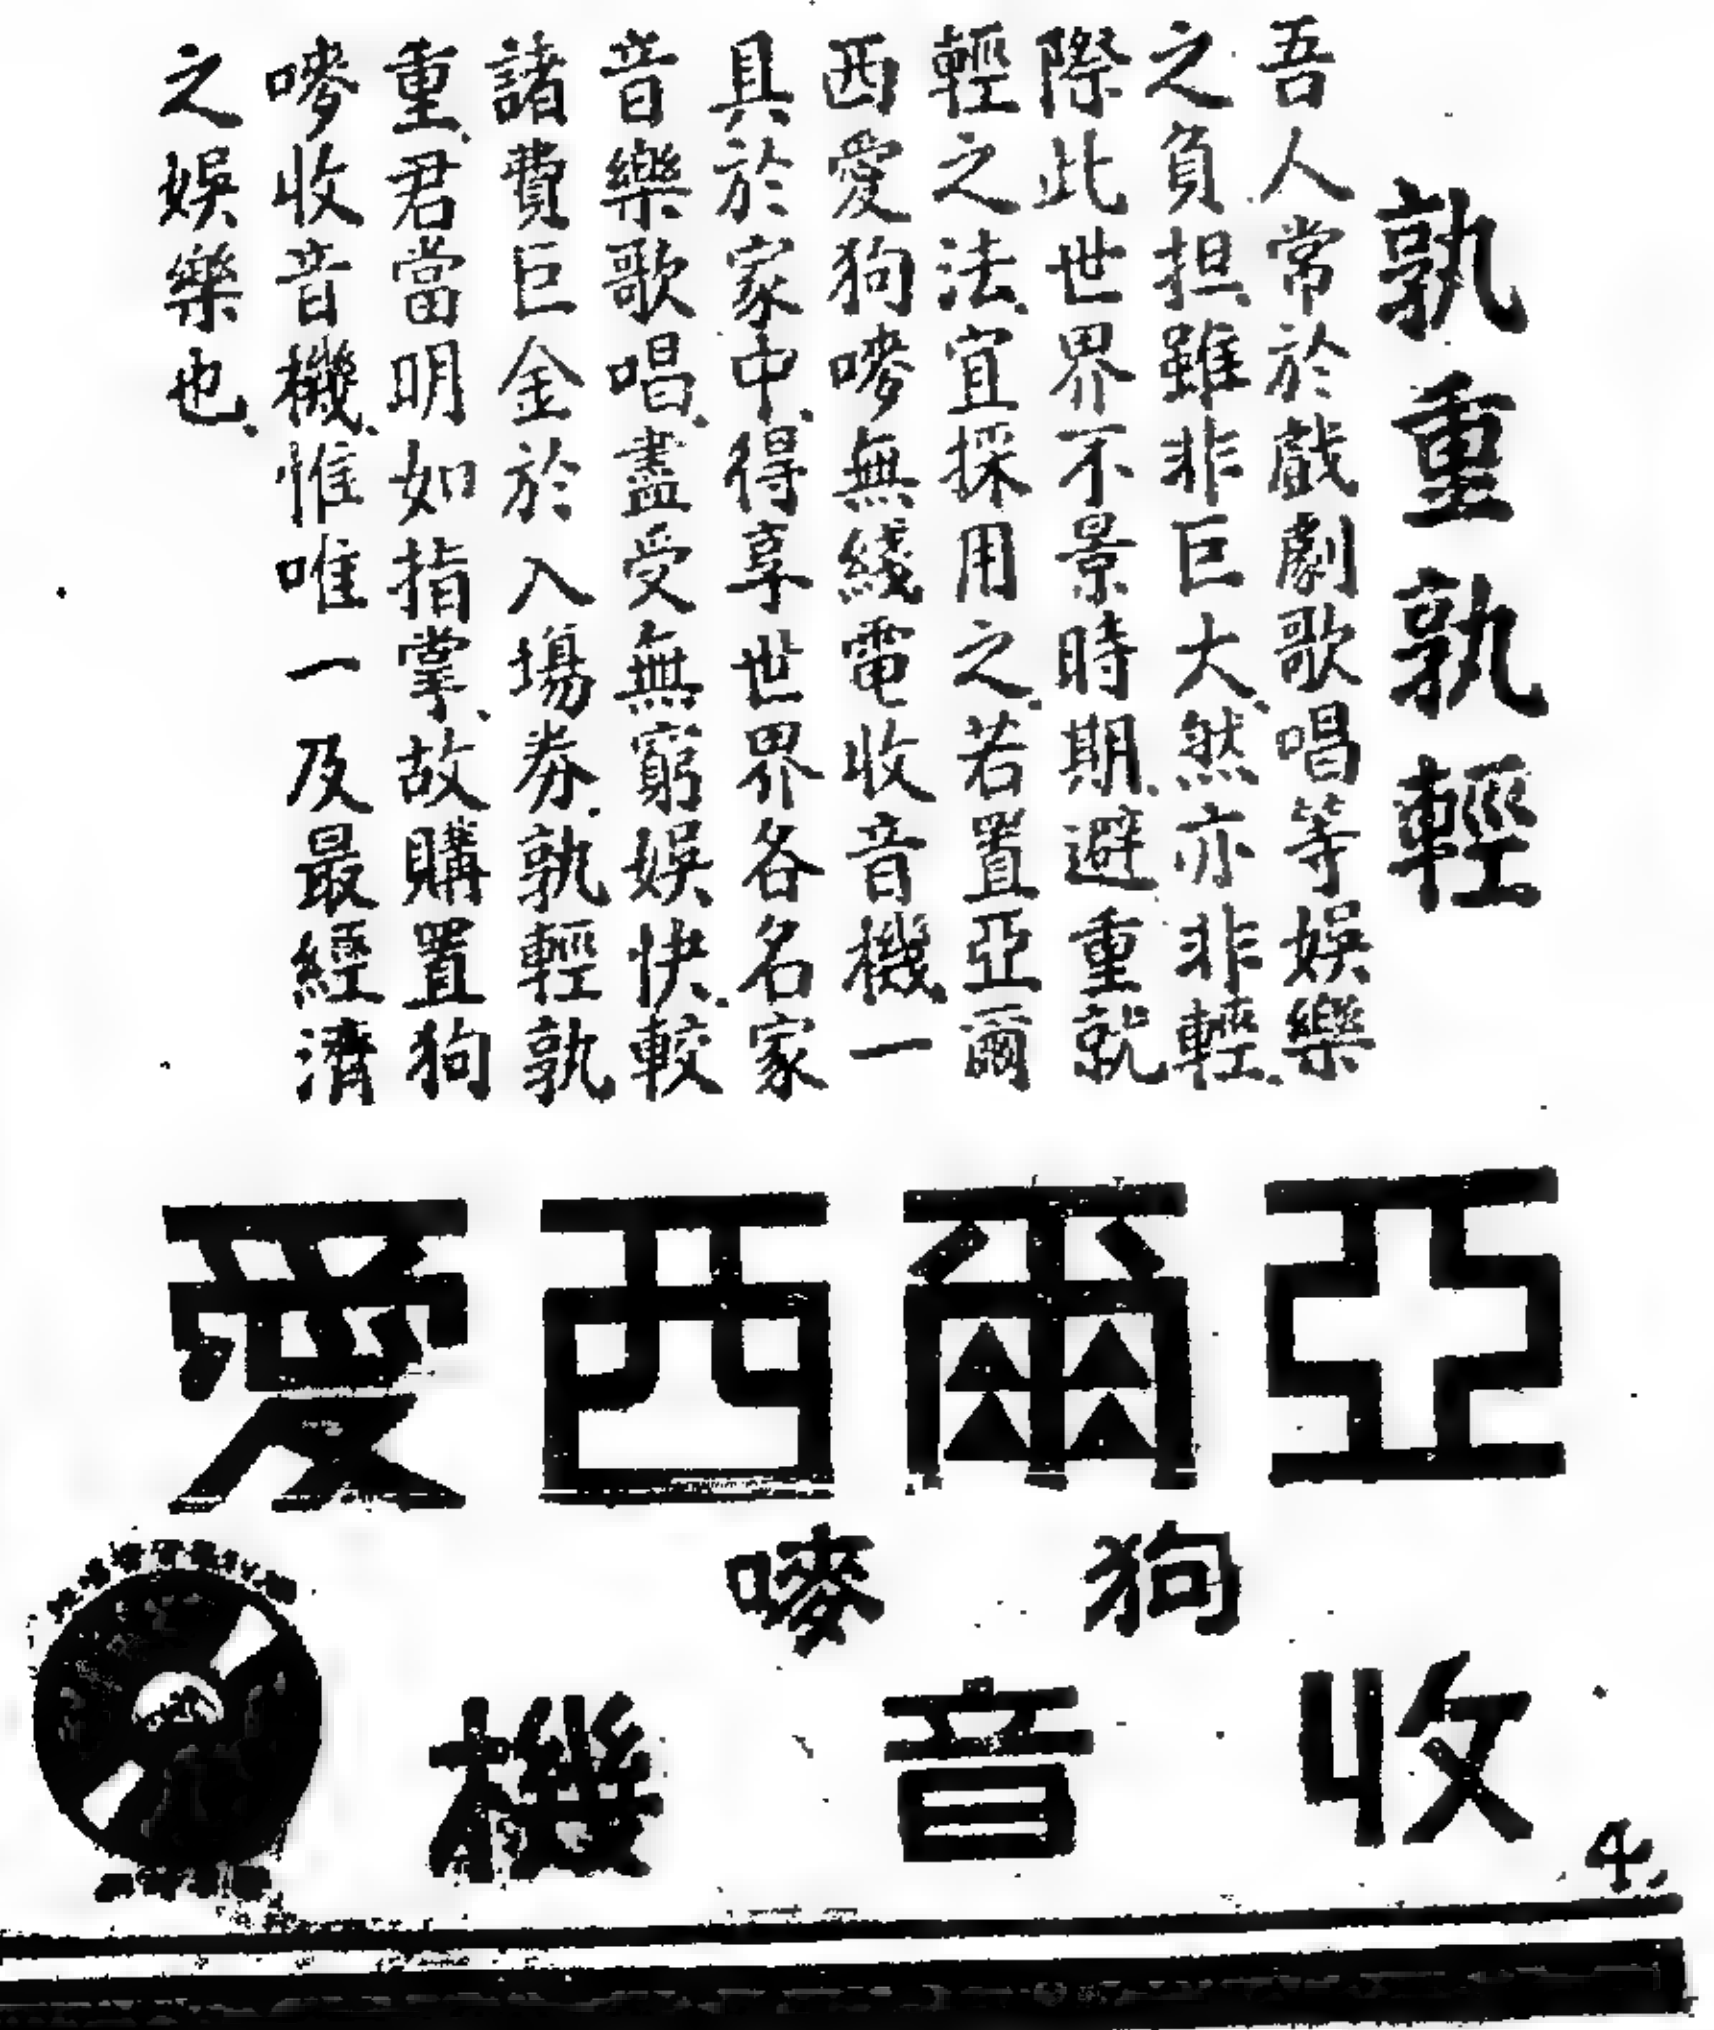 孰重孰輕
吾人常於戲劇歌唱等娛樂
之負担、雖非巨大、然亦非輕、
際此世界不景時期、避重就
輕之法、宜採用之、若置亞爾
西愛狗嘜無綫電收音機、一
具於家中、得享世界各名家
音樂歌唱、盡受無窮娛快、較
諸費巨金於入場券、孰輕孰
重、君當明如指掌、故購置狗
嘜收音機、惟唯一及最經濟
之娛樂也、
亞爾西愛
狗嘜
收音機